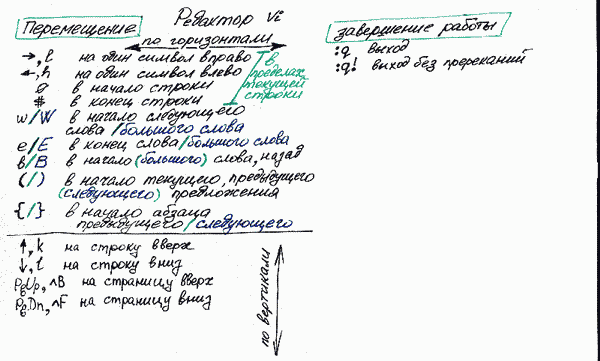 Редактор vi
Перемещение
по горизонтали
→, l на один символ вправо
←, h на один символ влево
0 в начало строки
# в конец строки
в пределах текущей строки
w/W в начало следующего
слова /большого слова
e/E в конец слова/большого слова
b/B в начало (большого) слова, назад
(/) в начало текущего, предыдущего
(следующего) предложения
{/} в начало абзаца
предыдущего/следующего
↑, k на строку вверх
↓, l на строку вниз
PgUp, ^B на страницу вверх
PgDn, ^F на страницу вниз
по вертикали
завершение работы
:q выход
:q! выход без пререканий